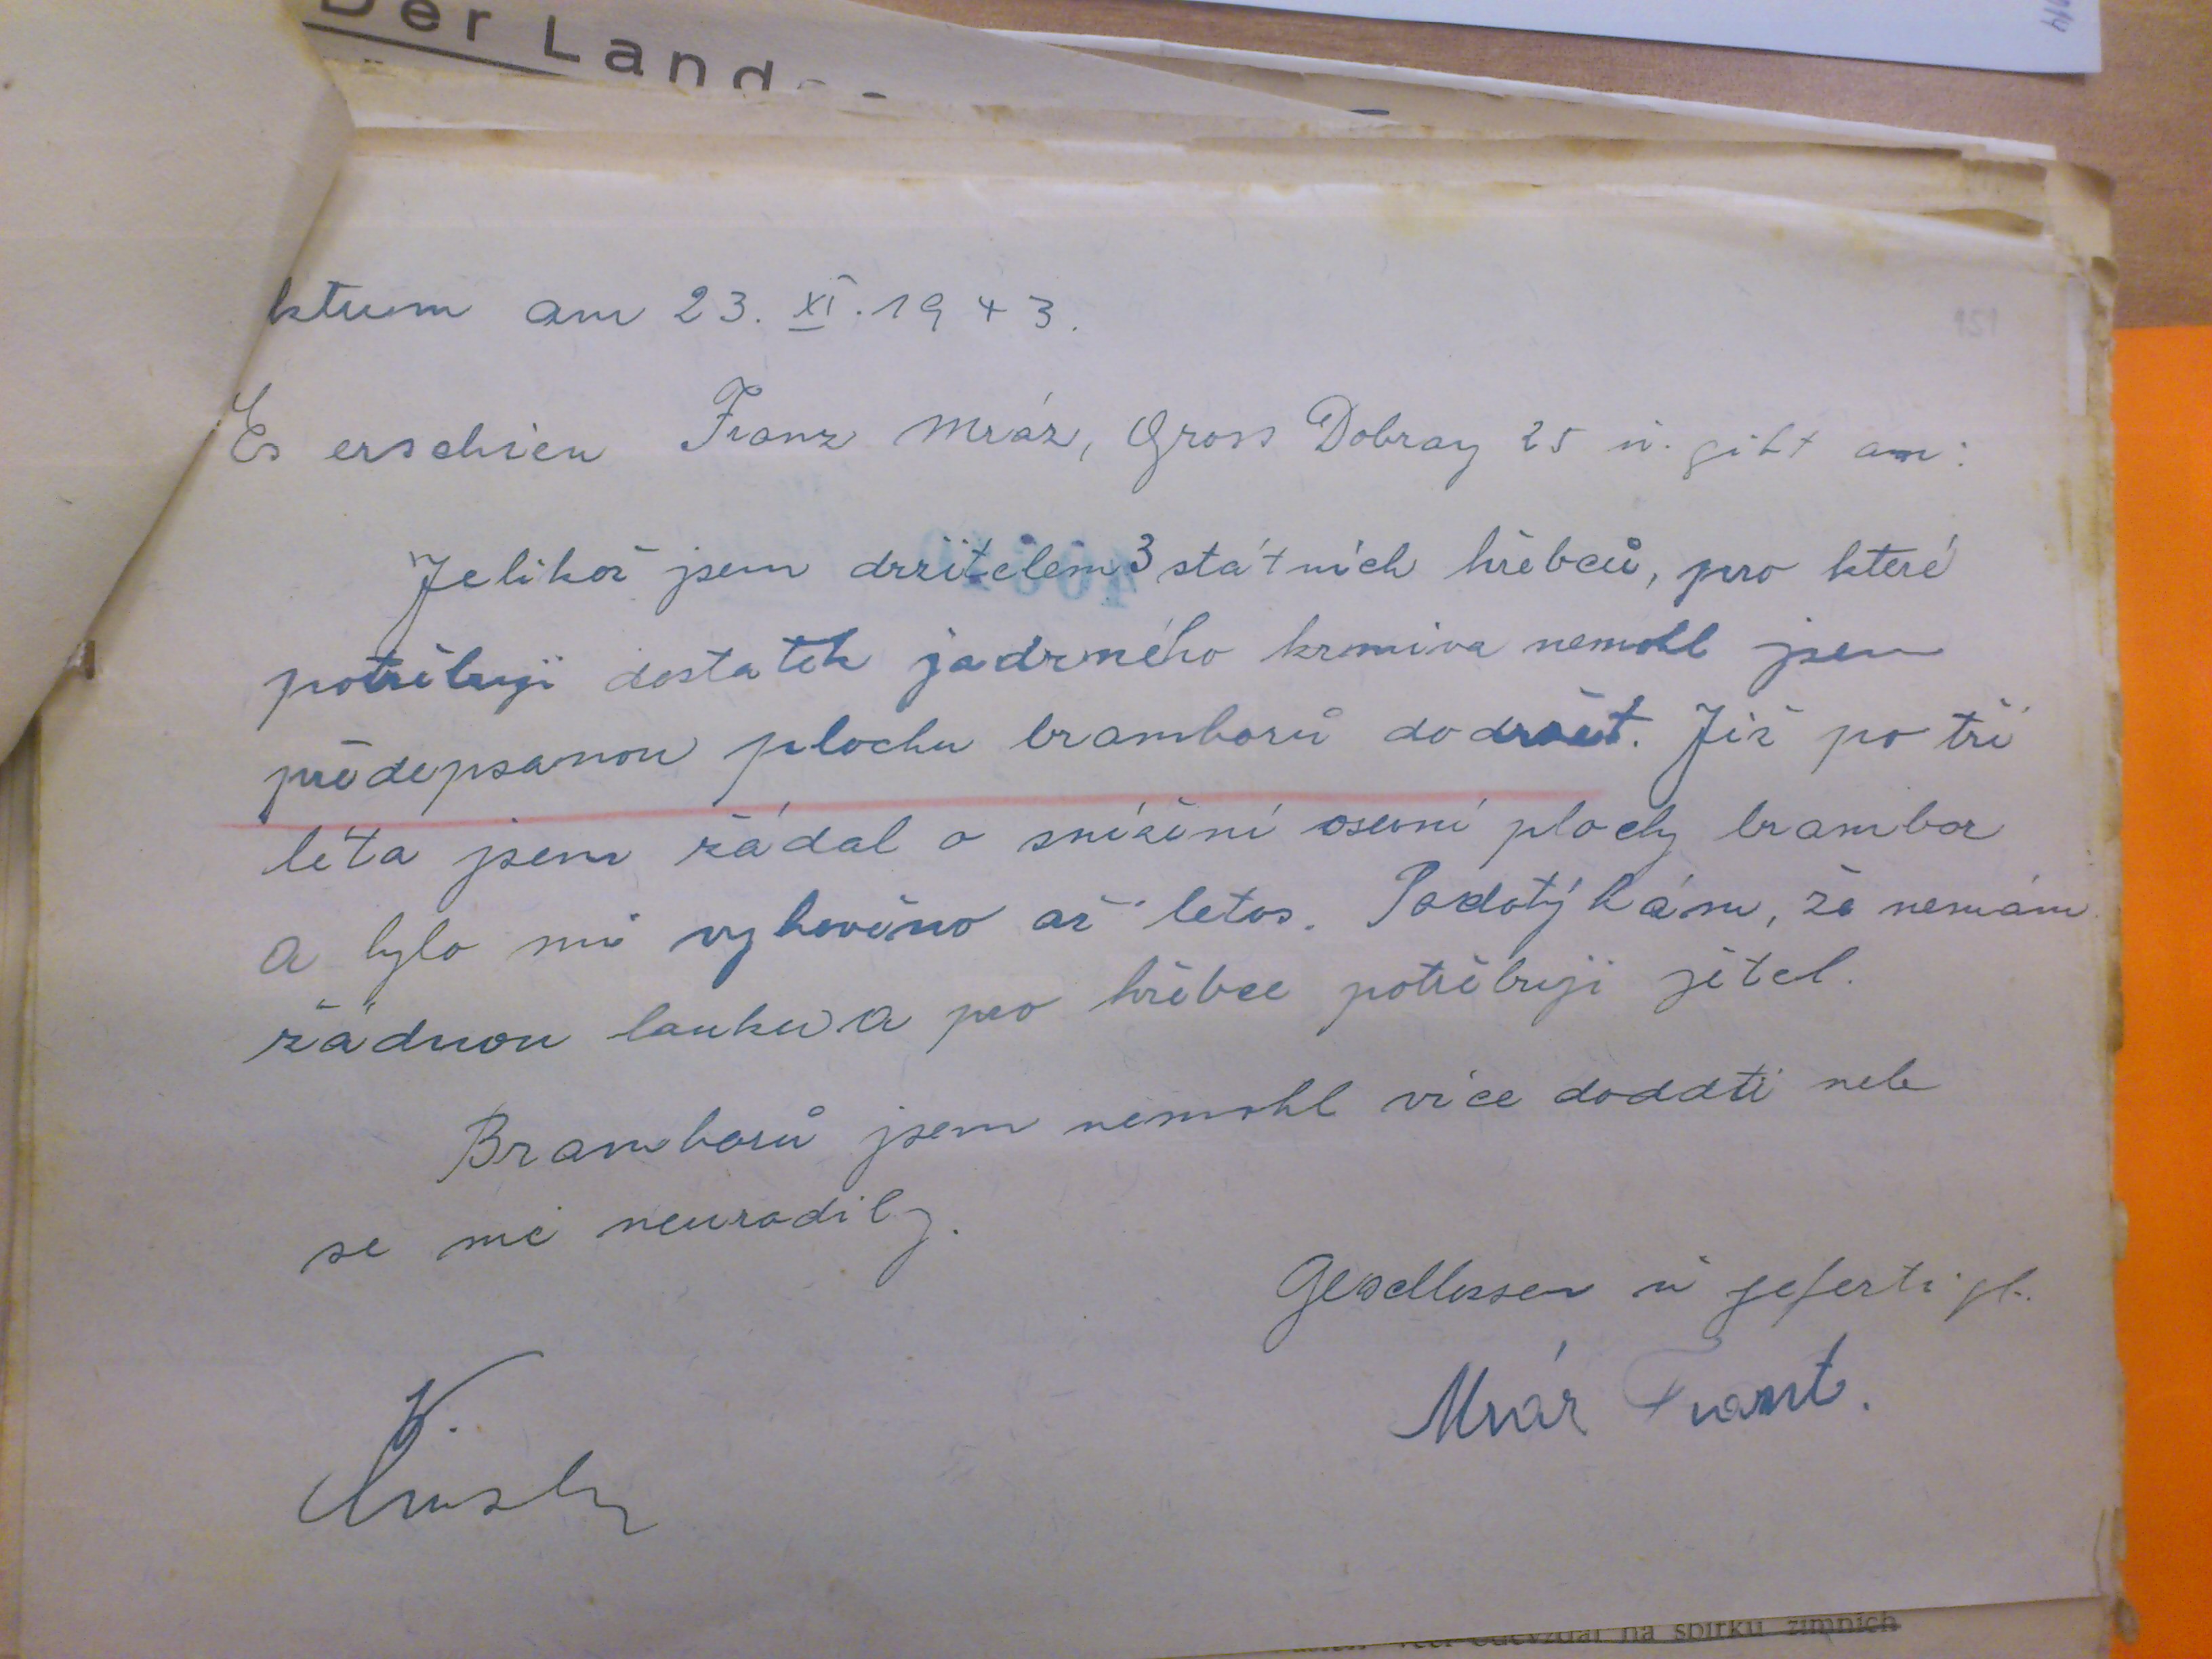 Der Land
ktum am 23. XI. 1943.
151
Es erschien Franz Mráz, Gross Dobray 25 u. gibt an:
Jelikož jsem držitelem 3 státních hřebců, pro které
potřebuji dostatek jadrného krmiva nemohl jsem
předepsanou plochu bramborů dodržet. Již po tři
léta jsem žádal o snížení osevní plochy brambor
a bylo mi vyhověno až letos. Podotýkám, že nemám
žádnou louku a pro hřebce potřebuji jetel.
Bramborů jsem nemohl více dodati neb
se mi neurodily.
Geschlossen u gefertigt.
Mráz Frant.
odevzdal na sbírku zimních